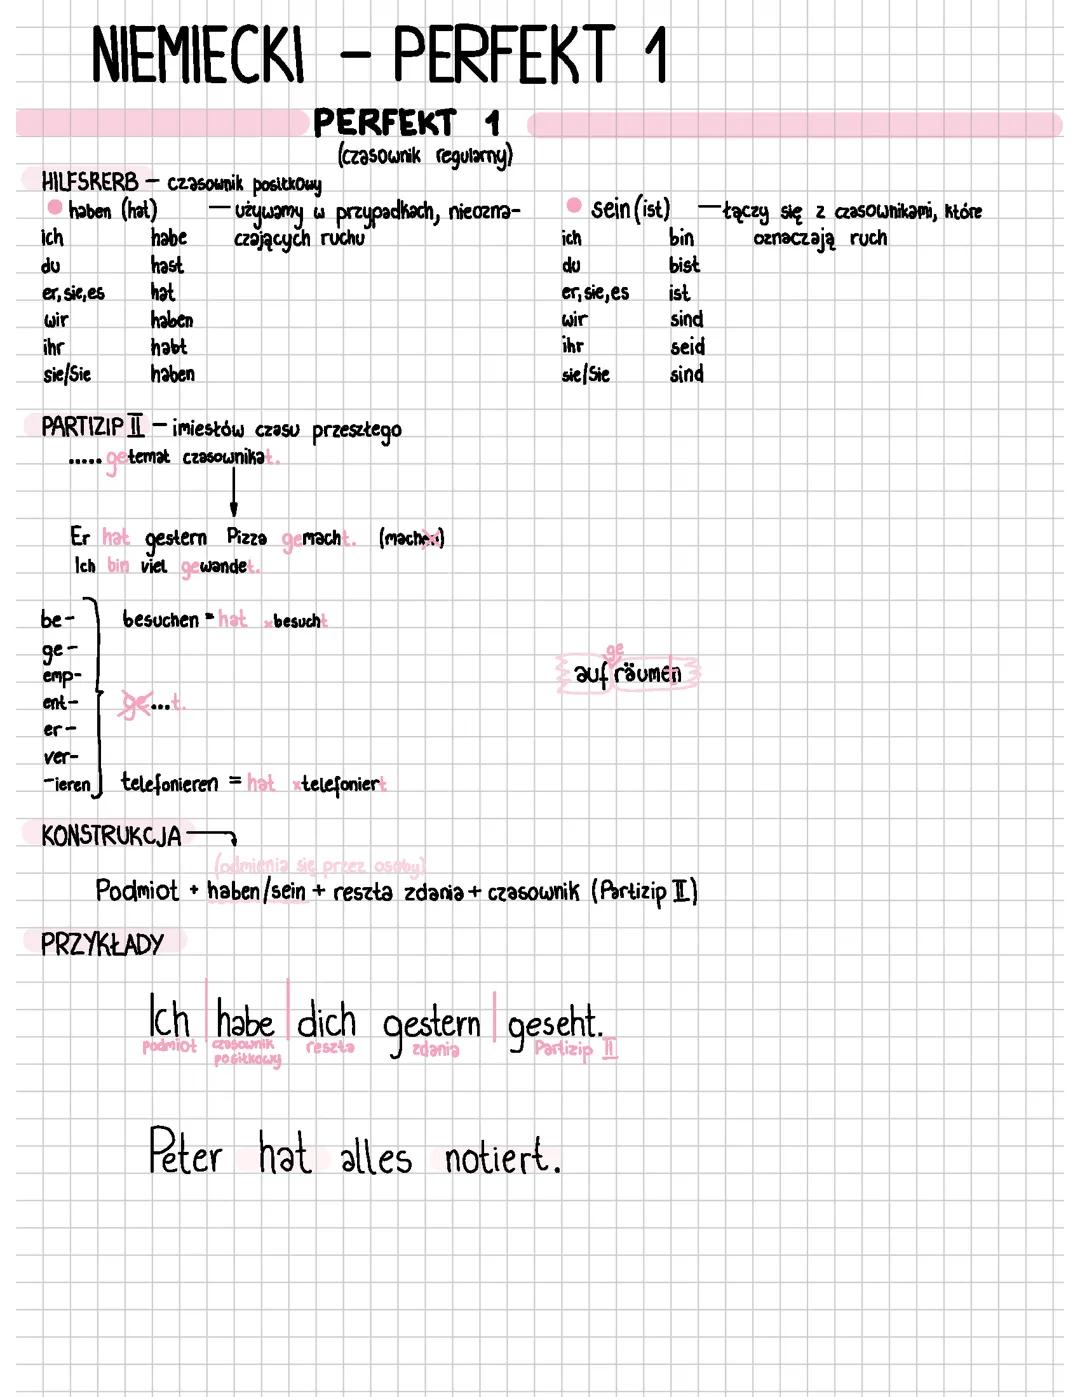 NIEMIECKI - PERFEKT 1
PERFEKT 1
(czasownik regularny)
HILFSRERB - czasownik posiłkowy
haben (hat) - używamy w przypadkach, nieozna-
czających ruchu
ich habe
du hast
er, sie, es hat
wir haben
ihr habt
sie/Sie haben
sein (ist) - łączy się z czasownikami, które
oznaczają ruch
ich bin
du bist
er, sie, es ist
wir sind
ihr seid
sie/Sie sind
PARTIZIP II - imiesłów czasu przeszłego
..... getemat czasownikat.
Er hat gestern Pizza gemacht. (machen)
Ich bin viel gewandet.
be- besuchen = hat x besucht
ge-
emp-
ent- ge...t.
er-
ver-
-ieren telefonieren = hat x telefoniert
ge
aufräumen
KONSTRUKCJA
(odmienia się przez osoby)
Podmiot + haben/sein + reszta zdania + czasownik (Partizip II)
PRZYKŁADY
Ich | habe | dich gestern | geseht.
podmiot czasownik posiłkowy reszta zdania Partizip II
Peter hat alles notiert.